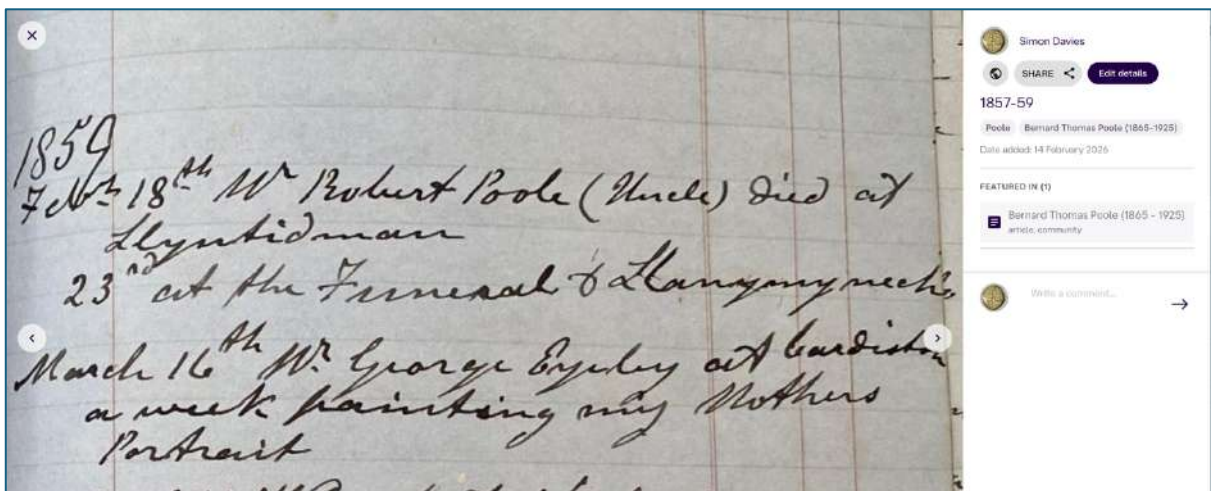 1859
Feby 18th Mr Robert Poole (Uncle) Died at
Llyntidman
23rd at the Funeral & Llanymynech
March 16th Mr George Eyeley at Cardiston
a week painting my Mothers
Portrait
Simon Davies
SHARE
Edit details
1857-59
Poole
Bernard Thomas Poole (1865-1925)
Date added: 14 February 2026
FEATURED IN (1)
Bernard Thomas Poole (1865 - 1925)
article, community
Write a comment...